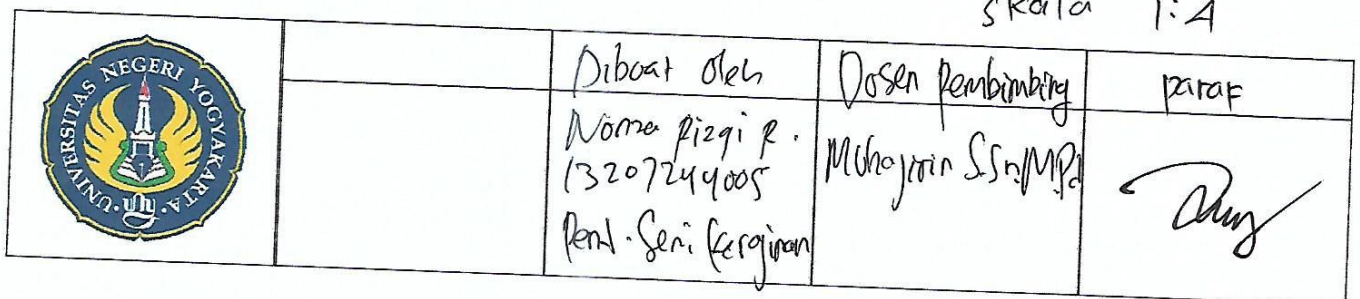 skala 1:4
UNIVERSITAS NEGERI YOGYAKARTA
Dibuat oleh
Dosen Pembimbing
paraf
Noma Rizqi R.
13207244005
Pend. Seni Kerajinan
Muhajirin S.Sn, M.Pd